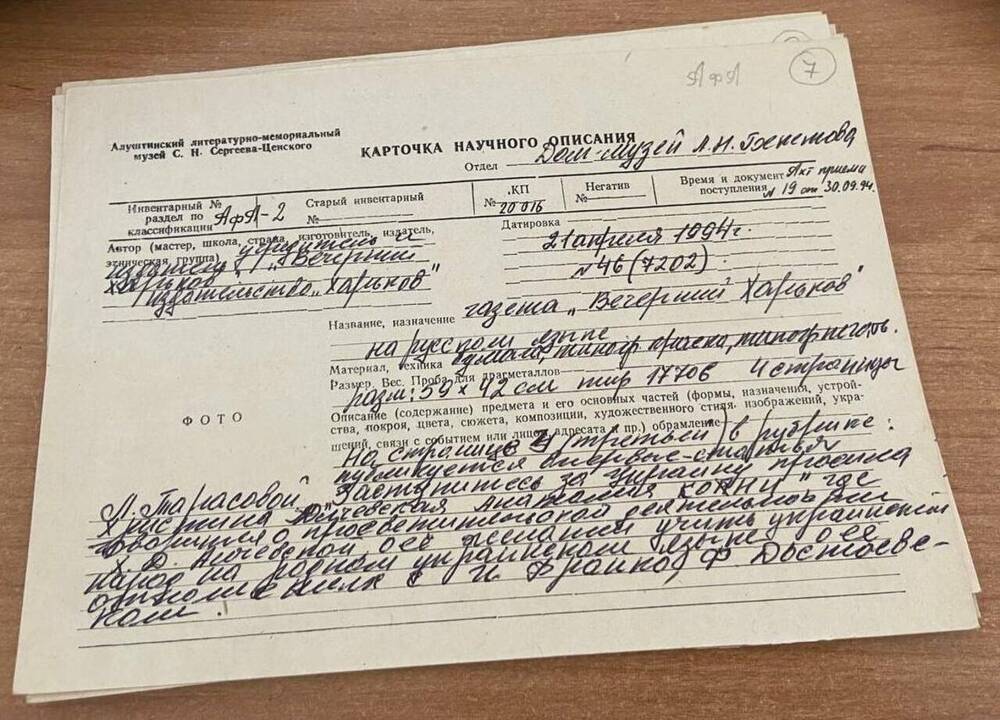 АфА
7
Алуштинский литературно-мемориальный
музей С. Н. Сергеева-Ценского
КАРТОЧКА НАУЧНОГО ОПИСАНИЯ
Отдел Дом-музей А.Н. Бекетова
Инвентарный №
раздел по
классификации АфА-2
Старый инвентарный
№
КП
№ 20016
Негатив
№
Время и документ Акт приема
поступления № 19 от 30.09.94.
Автор (мастер, школа, страна, изготовитель, издатель,
этническая группа) учредитель и
издатель "Вечерний
Харьков"
издательство "Харьков"
Датировка
21 апреля 1994г.
№ 46 (7202)
Название, назначение газета "Вечерний Харьков"
на русском языке
Материал, техника бумага, типогр краска, типогр печать.
Размер. Вес. Проба для драгметаллов
разм: 59 х 42 см тир 17706 4 страницы
Описание (содержание) предмета и его основных частей (формы, назначения, устрой-
ства, покроя, цвета, сюжета, композиции, художественного стиля, изображений, укра-
шений, связи с событием или лицом, адресата и пр.) обрамление
ФОТО
На странице 3 (третьей) в рубрике:
публикуется впервые - статья
Л. Тарасовой "Заступитесь за Украину просила
Христина Алчевская" где
говорится о просветительской деятельности
Х. Д. Алчевской ее желании учить украинский
народ на родном украинском языке, о ее
отношениях с И. Франко, Ф. Достоевс-
ким.